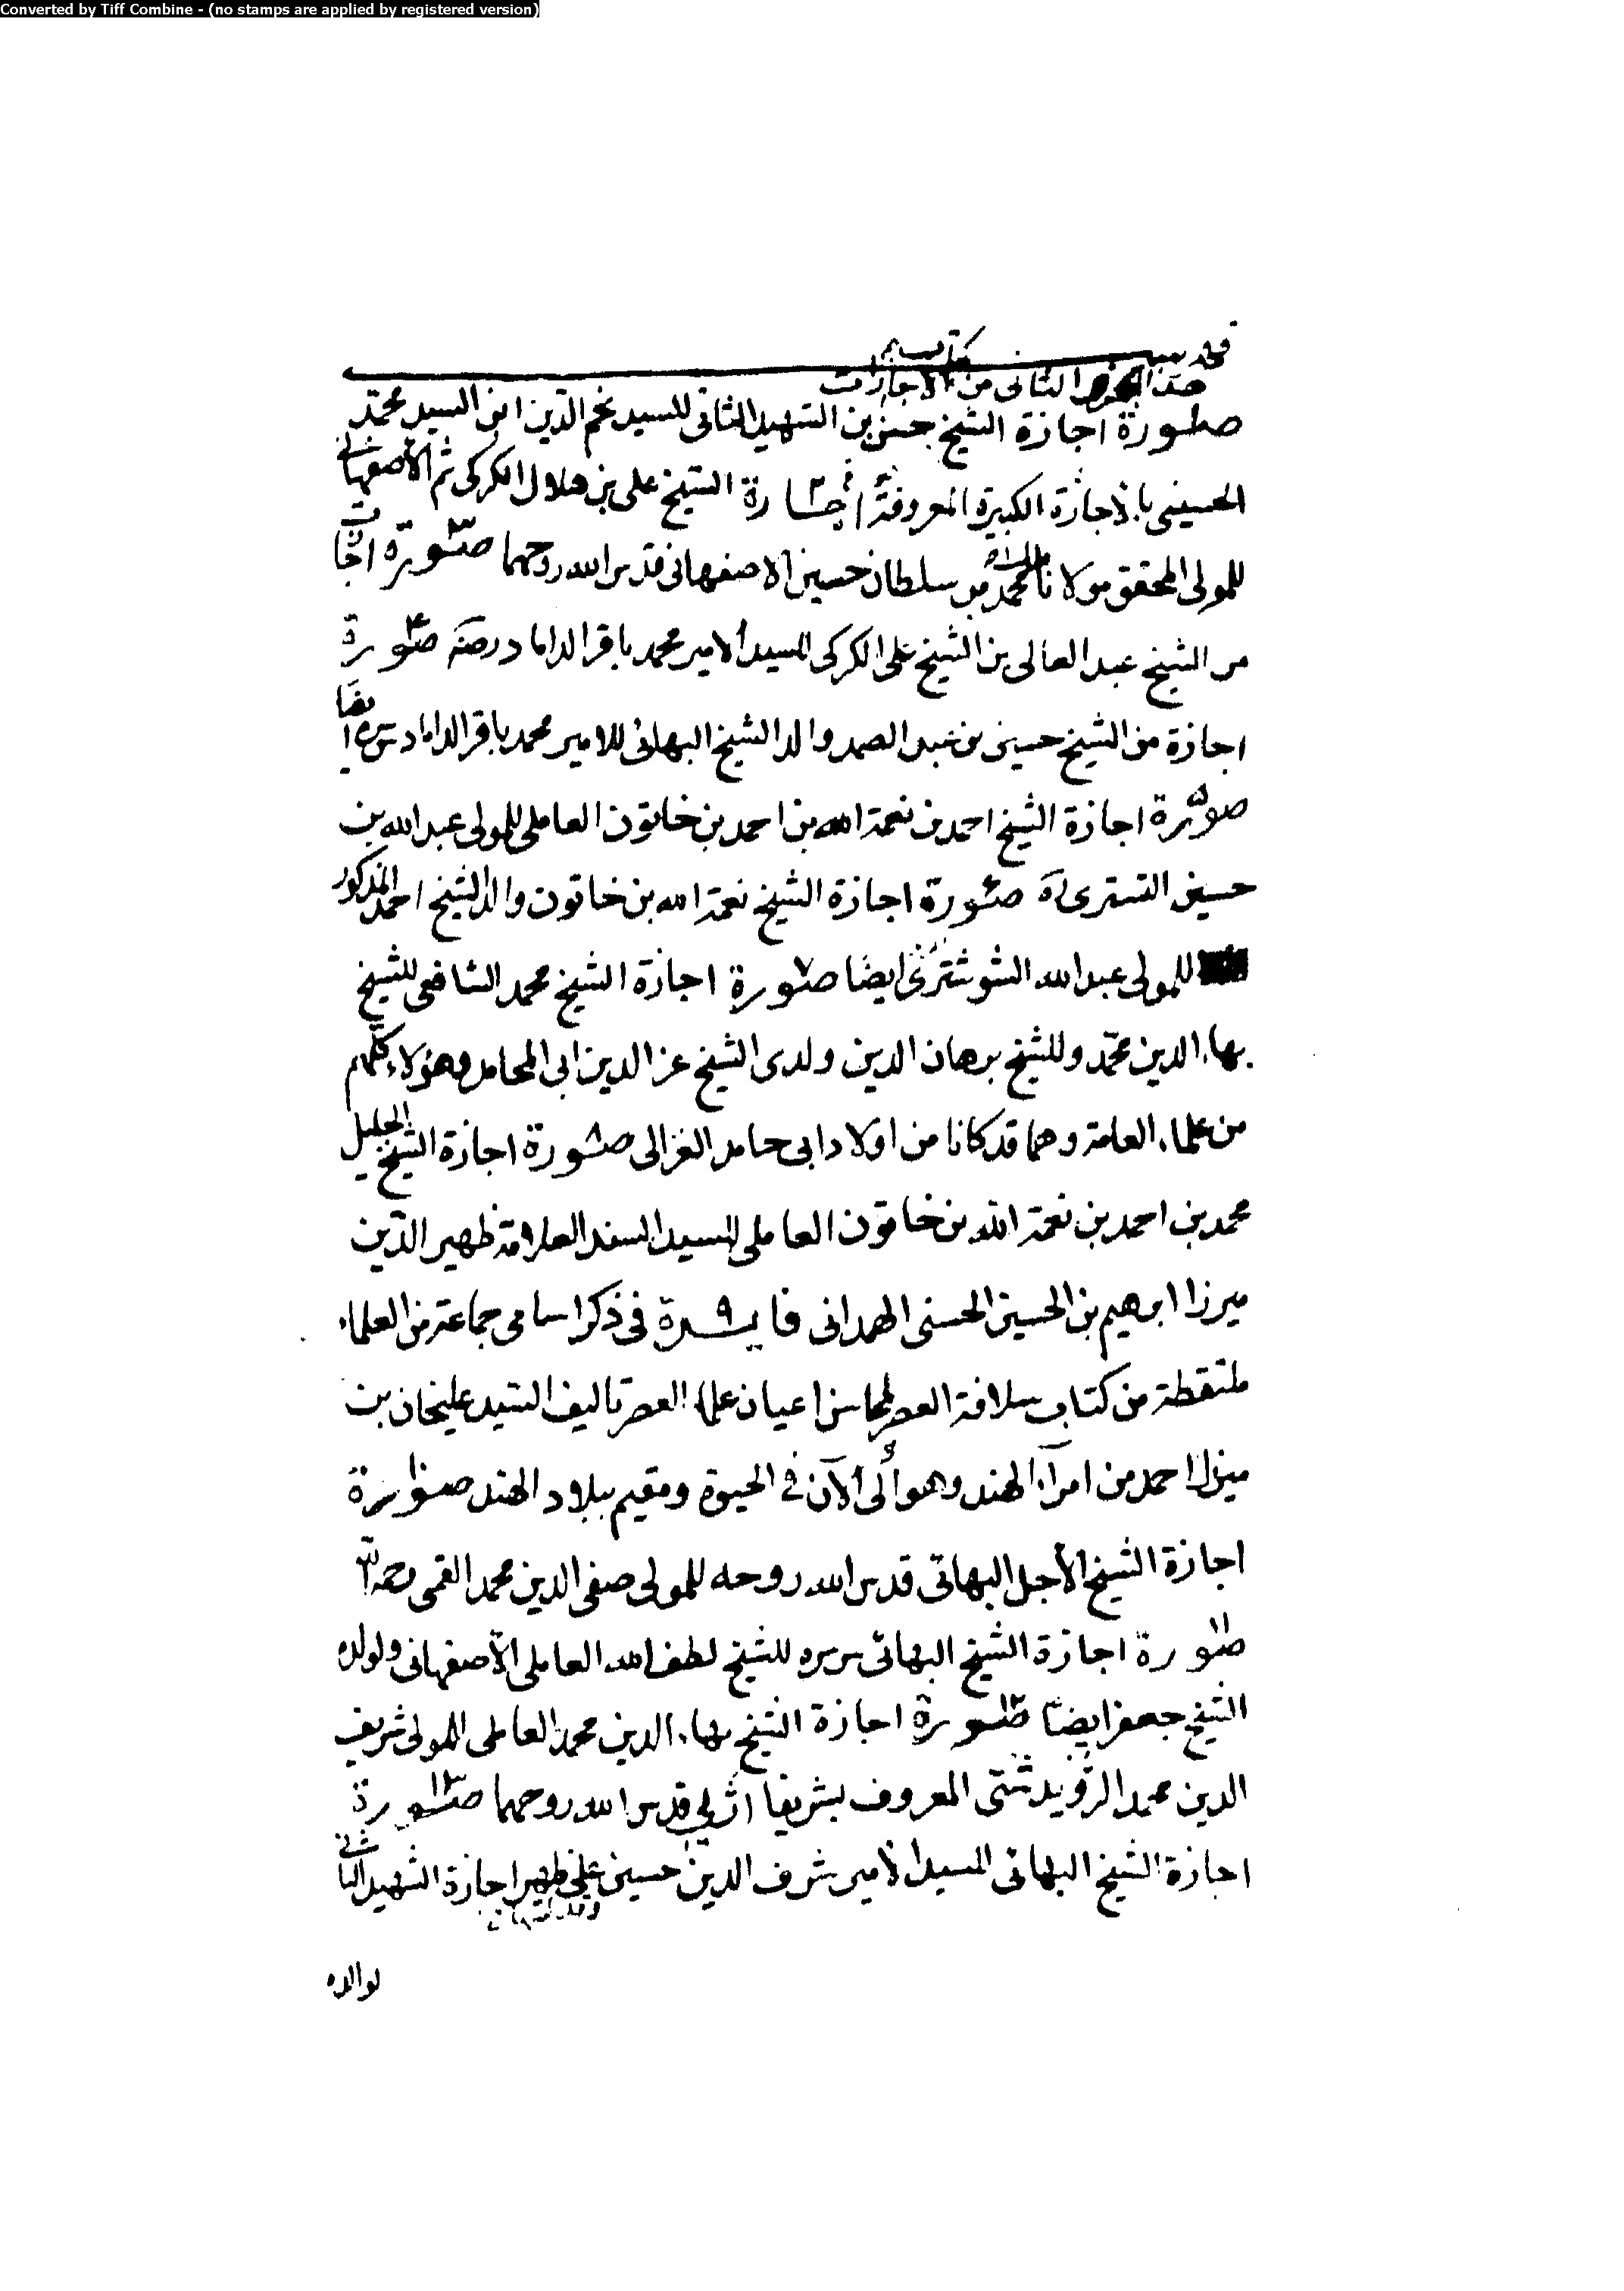 Converted by Tiff Combine - (no stamps are applied by registered version)
هذا الجزء الثانى من كتاب الاجازات
صورة اجازة الشيخ حسن بن الشهيد الثانى للسيد نجم الدين ابن السيد محمد
الحسينى بالاجازة الكبيرة المعروفة ٢ اجازة الشيخ على بن هلال الكركى ثم الأصفهانى
للمولى المحقق مولانا ملك محمد بن سلطان حسين الاصفهانى قدس الله روحهما ٣ صورة اجازت
من الشيخ عبد العالى بن الشيخ على الكركى للسيد الامير محمد باقر الداماد ٤ صورة
اجازة من الشيخ حسين بن عبد الصمد والد الشيخ البهائى للامير محمد باقر الداماد ايضا
٥ صورة اجازة الشيخ احمد بن نعمة الله بن احمد بن خاتون العاملى للمولى عبد الله بن
حسين التسترى ره ٦ صورة اجازة الشيخ نعمة الله بن خاتون والد الشيخ احمد المذكور
للمولى عبد الله الشوشترى ايضا ٧ صورة اجازة الشيخ محمد الشافعى للشيخ
بهاء الدين محمد وللشيخ برهان الدين ولدى الشيخ عز الدين ابى المحامد وهؤلاء كلهم
من علماء العامة وهما قد كانا من اولاد ابى حامد الغزالى ٨ صورة اجازة الشيخ الجليل
محمد بن احمد بن نعمة الله بن خاتون العاملى للسيد السند العلامة ظهير الدين
ميرزا ابرهيم بن الحسين الحسنى الهمدانى ٩ فايدة فى ذكر اسامى جماعة من العلماء
ملتقطة من كتاب سلافة العصر لمحاسن اعيان علماء العصر تاليف السيد عليخان بن
ميرزا احمد من امراء الهند وهو الى الآن فى الحيوة ومقيم ببلاد الهند ١٠ صورة
اجازة الشيخ الأجل البهائى قدس الله روحه للمولى صفى الدين محمد القمى رحمه الله
١١ صورة اجازة الشيخ البهائى س سره للشيخ لطف الله العاملى الأصفهانى ولولده
الشيخ جعفر ايضا ١٢ صورة اجازة الشيخ بهاء الدين محمد العاملى للمولى شريف
الدين محمد الرويدشتى المعروف بشريفا قدس الله روحهما ١٣ صورة
اجازة الشيخ البهائى للسيد الامير شرف الدين حسين على ظهر اجازة الشهيد الثانى
لوالده